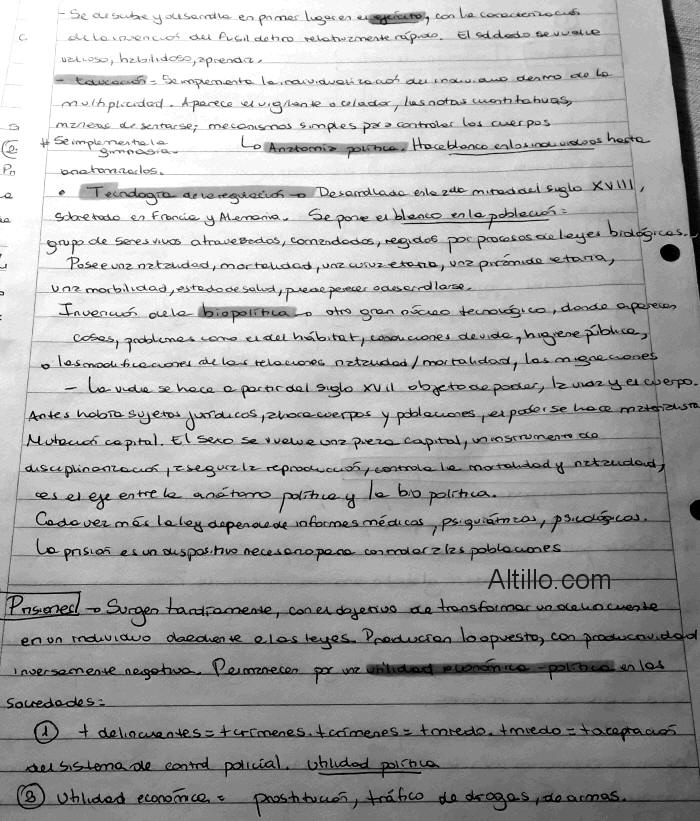 - Se descubre y desarrolla en primer lugar en el ejército, con la caracterización
de la invención del fusil de tiro relativamente rápido. El soldado se vuelve
valioso, habilidoso, aprendiz.
- Educación = Se implementa la individualización del individuo dentro de la
multiplicidad. Aparece el vigilante o celador, las notas cuantitativas,
maneras de sentarse; mecanismos simples para controlar los cuerpos
# Se implementa la gimnasia. ↳ Anatomía política. Hace blanco en los individuos hasta
anatomizarlos.
• Tecnología de la regulación → Desarrollada en la 2da mitad del siglo XVIII,
sobretodo en Francia y Alemania. Se pone el blanco en la población:
grupo de seres vivos atravesados, comandados, regidos por procesos de leyes biológicas.
Posee una natalidad, mortalidad, una curva etaria, una pirámide etaria,
una morbilidad, estado de salud, puede perecer o desarrollarse.
Invención de la biopolítica → otro gran núcleo tecnológico, donde aparecen
cosas, problemas como el del hábitat, condiciones de vida, higiene pública,
o las modificaciones de las relaciones natalidad/mortalidad, las migraciones
- La vida se hace a partir del siglo XVII objeto de poder, la vida y el cuerpo.
Antes había sujetos jurídicos, ahora cuerpos y poblaciones, el poder se hace materialista
Mutación capital. El sexo se vuelve una pieza capital, un instrumento de
disciplinarización, asegura la reproducción, controla la mortalidad y natalidad,
es el eje entre la anátomo política y la bio política.
Cada vez más la ley depende de informes médicos, psiquiátricos, psicológicos.
La prisión es un dispositivo necesario para controlar a las poblaciones
Altillo.com
Prisiones → Surgen tardíamente, con el objetivo de transformar un delincuente
en un individuo obediente a las leyes. Producían lo opuesto, con productividad
inversamente negativa. Permanecen por una utilidad económica-política en las
sociedades:
① + delincuentes = + crímenes. + crímenes = + miedo. + miedo = + aceptación
del sistema de control policial. Utilidad política
② Utilidad económica = prostitución, tráfico de drogas, de armas.